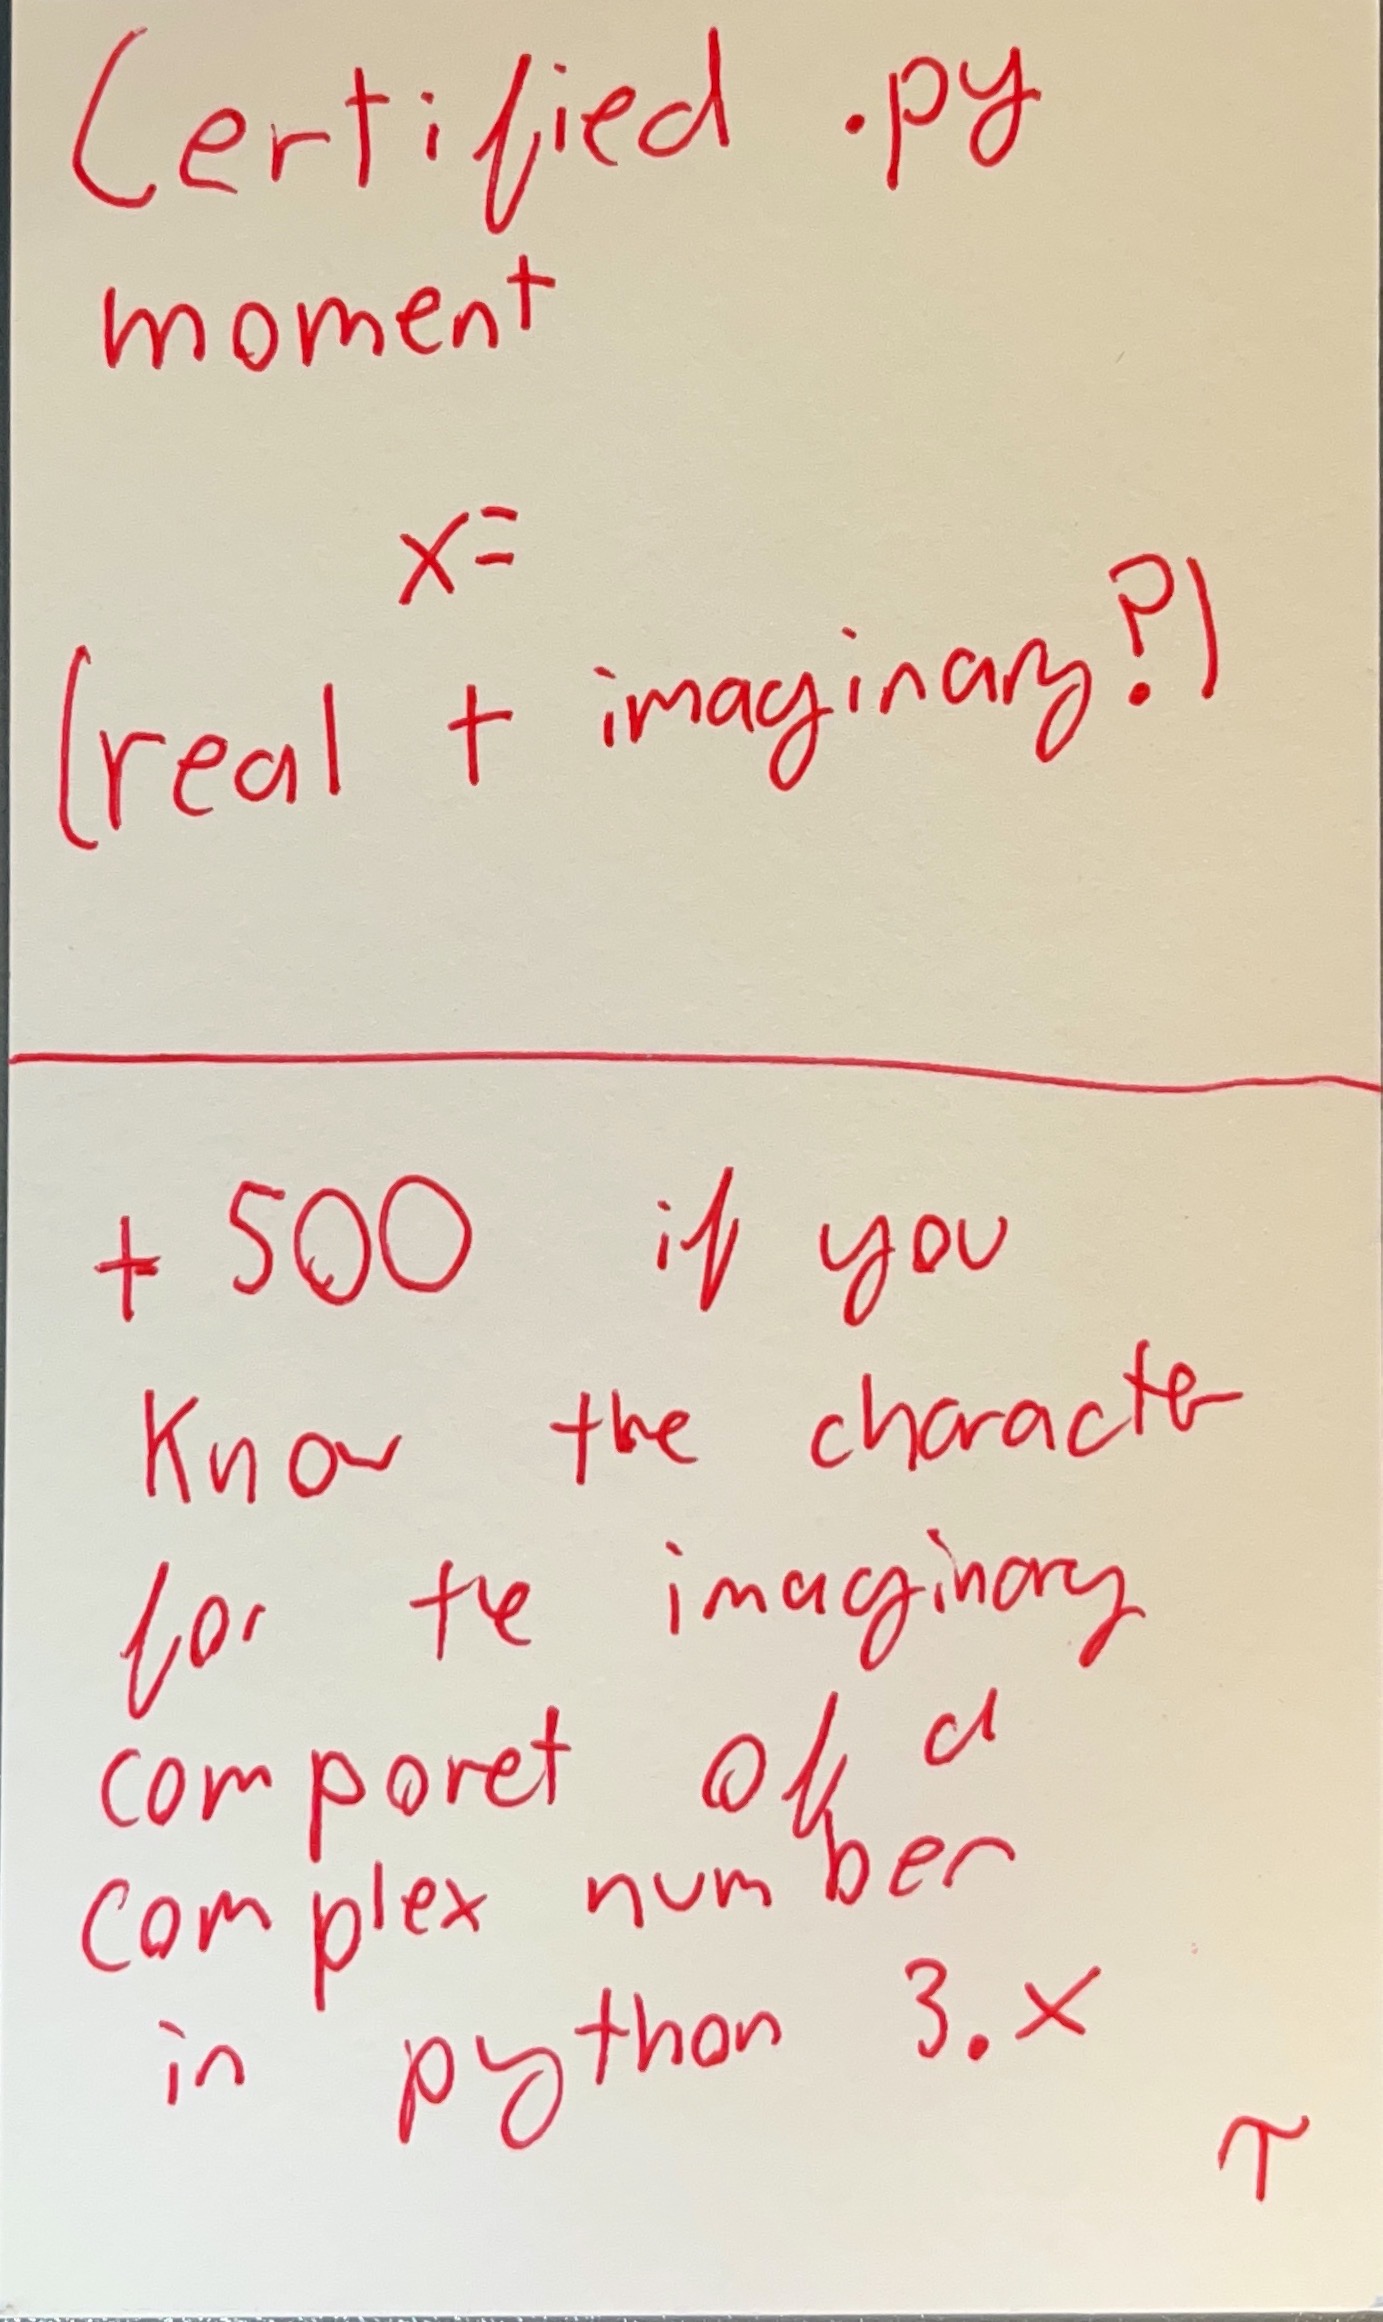 Certified .py
moment
x=
(real + imaginary?)
+ 500 if you
Know the character
for the imaginary
componet of a
complex number
in python 3.x
τ